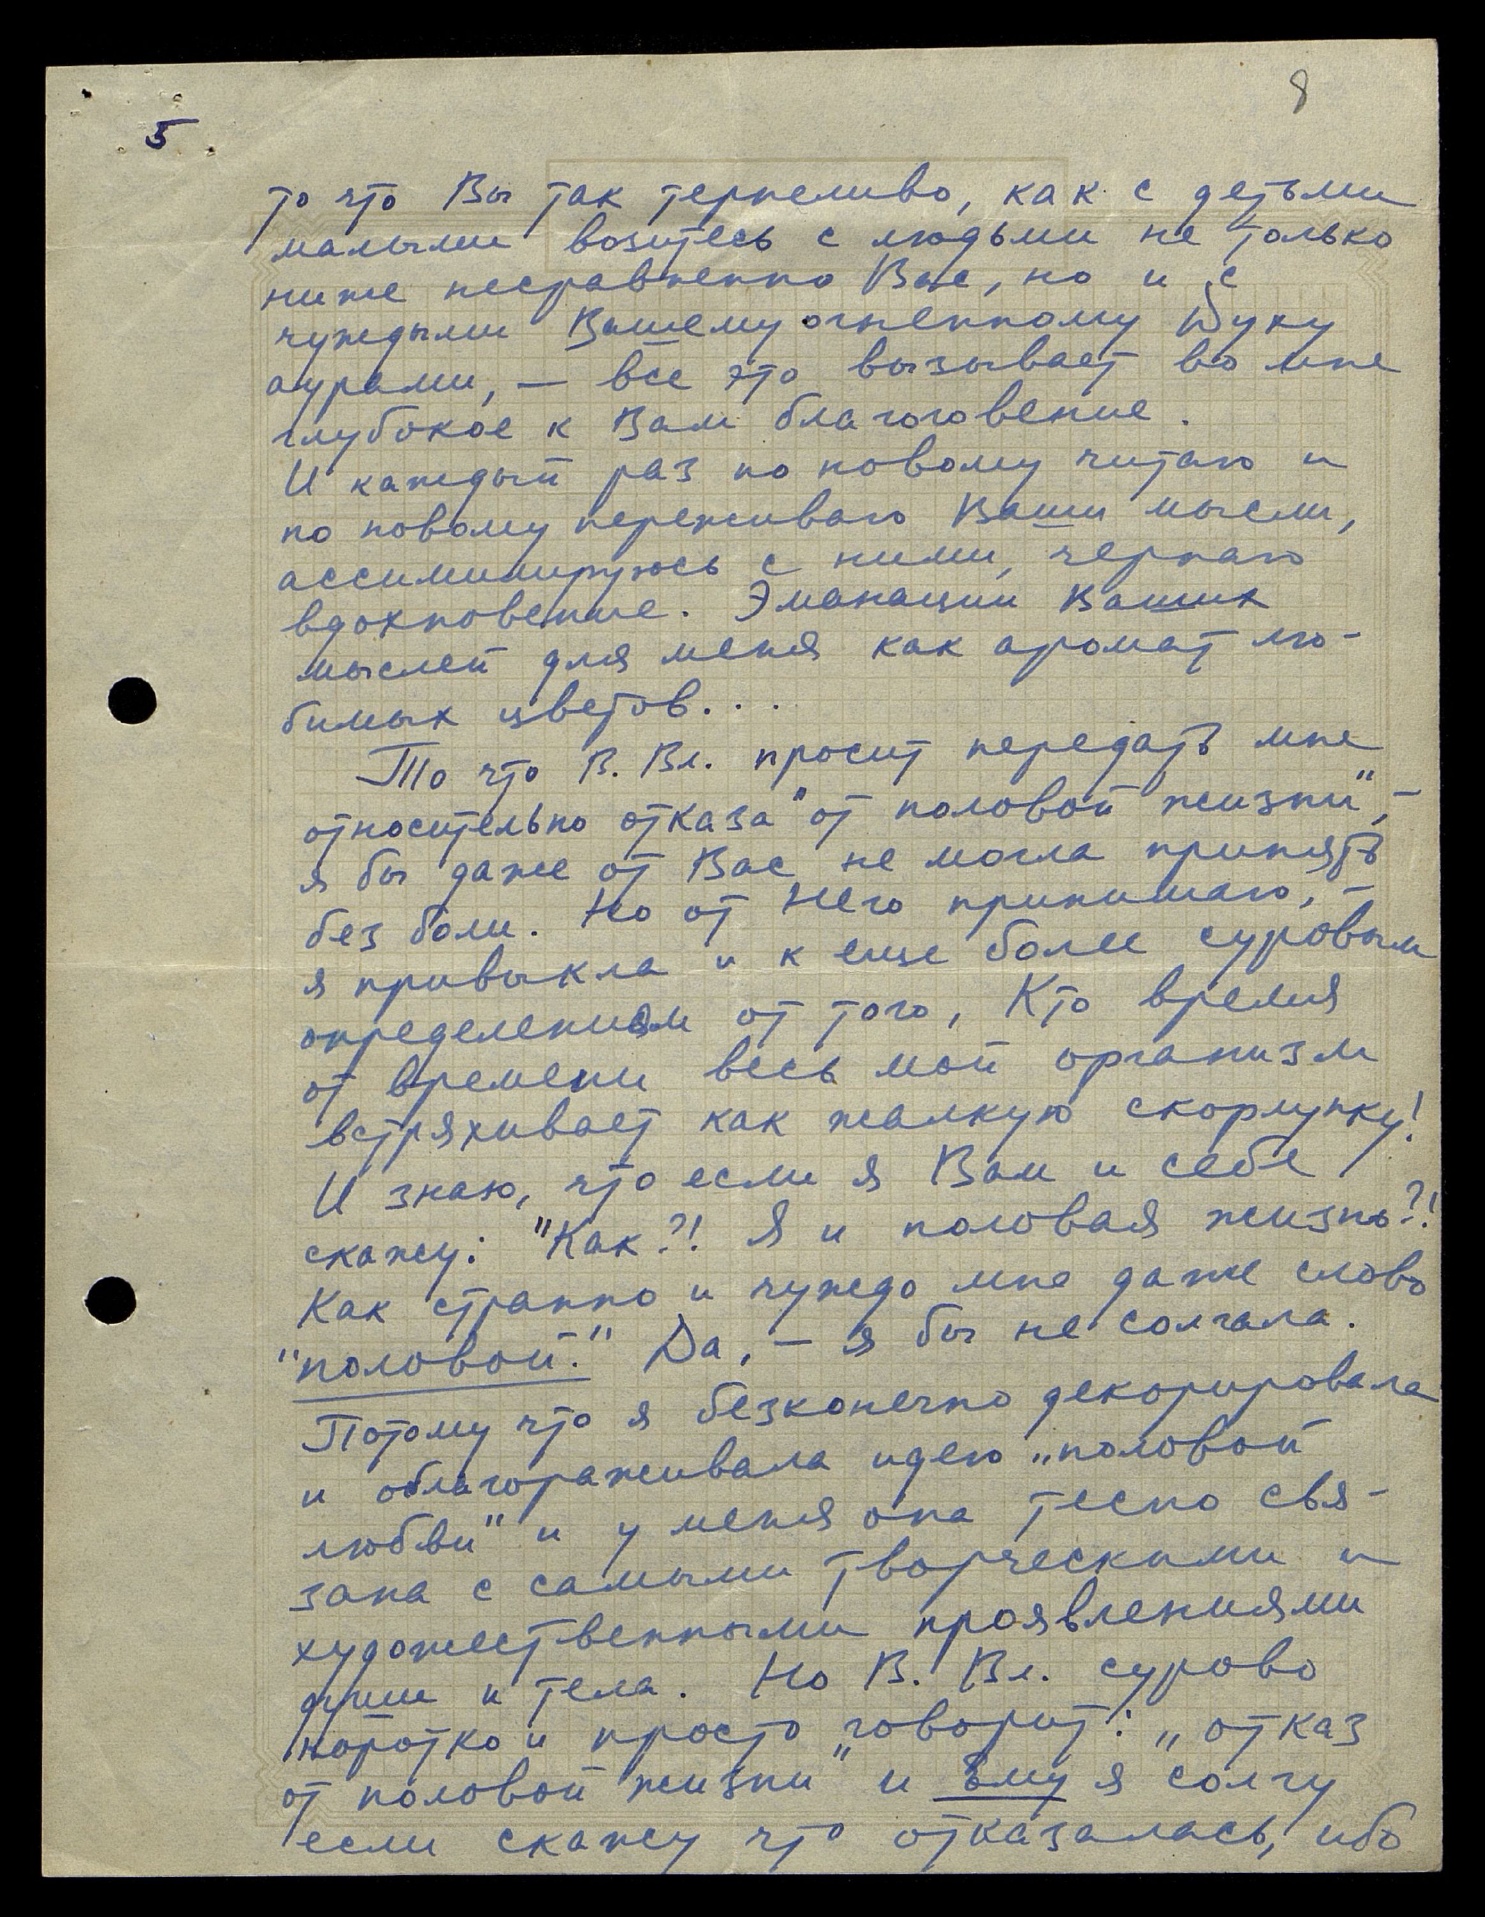 8
5
то что Вы так терпеливо, как с детьми
малыми возитесь с людьми не только
ниже несравненно Вас, но и с
чуждыми Вашему огненному Духу
аурами, — все это вызывает во мне
глубокое к Вам благоговение.
И каждый раз по новому читаю и
по новому переживаю Ваши мысли,
ассимилируюсь с ними, черпаю
вдохновение. Эманации Ваших
мыслей для меня как аромат лю-
бимых цветов...
То что В. Вл. просит передать мне
относительно отказа "от половой жизни", —
я бы даже от Вас не могла принять
без боли. Но от Него принимаю, —
я привыкла и к еще более суровым
определениям от того, Кто время
от времени весь мой организм
встряхивает как жалкую скорлупку!
И знаю, что если я Вам и себе
скажу: "Как?! Я и половая жизнь?!
Как странно и чуждо мне даже слово
"половой." Да, — я бы не солгала.
Потому что я безконечно декорировала
и облагораживала идею „половой
любви" и у меня она тесно свя-
зана с самыми творческими и
художественными проявлениями
души и тела. Но В. Вл. сурово
коротко и просто говорит: „отказ
от половой жизни" и Ему я солгу
если скажу что отказалась, ибо